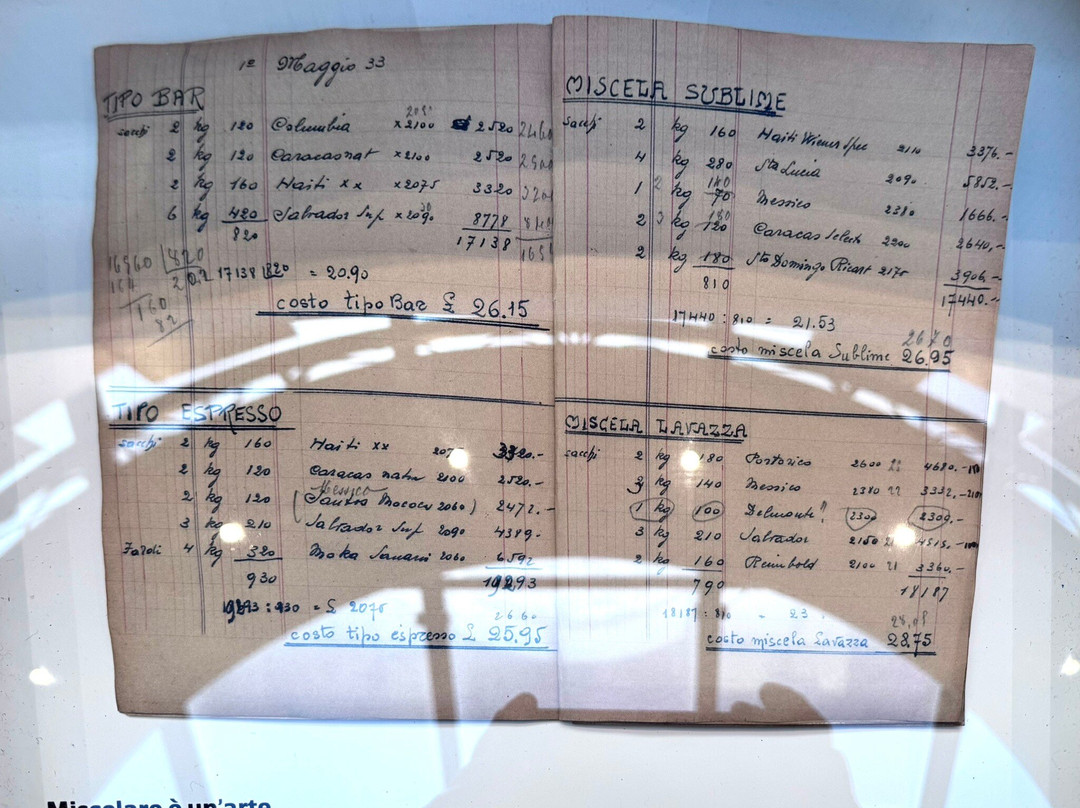 1º Maggio 33
TIPO BAR
sacchi 2 kg 120 Columbia x2100 2520
2 kg 120 Caracas nat x2100 2520
2 kg 160 Haiti xx x2075 3320
6 kg 420 Salvador Sup x2090 8778
820 17138
16960 820
164
160
82
17138 820 = 20.90
costo tipo Bar £ 26.15
TIPO ESPRESSO
sacchi 2 kg 160 Haiti xx 207 3320.-
2 kg 120 Caracas natur 2100 2520.-
Messico
2 kg 120 (Santos Mococa 2060) 2472.-
3 kg 210 Salvador Sup 2090 4389-
Fardi 4 kg 320 Moka Sanani 2060 6592
930 19293
19293 : 930 = £ 2075
2660
costo tipo espresso £ 25.95
MISCELA SUBLIME
sacchi 2 kg 160 Haiti Wiener Spec 2110 3376.-
4 kg 280 Sta Lucia 2090.- 5852.-
1 2 kg 70 140 Messico 2380 1666.-
2 3 kg 120 180 Caracas Selecto 2200 2640,-
2 kg 180 Sto Domingo Ricart 2170 3906.-
810 17440.-
17440 : 810 = 21.53
2670
costo miscela Sublime 26.95
MISCELA LAVAZZA
sacchi 2 kg 180 Portorico 2600 4680.-
2 kg 140 Messico 2380 22 3332.-
1 kg 100 Delmonte? 2300 2300,-
3 kg 210 Salvador 2150 4515.-
2 kg 160 Reimbold 2100 21 3360.-
790 18187
18187 : 810 = 23
costo miscela Lavazza 28.75
Miscelare è un'arte